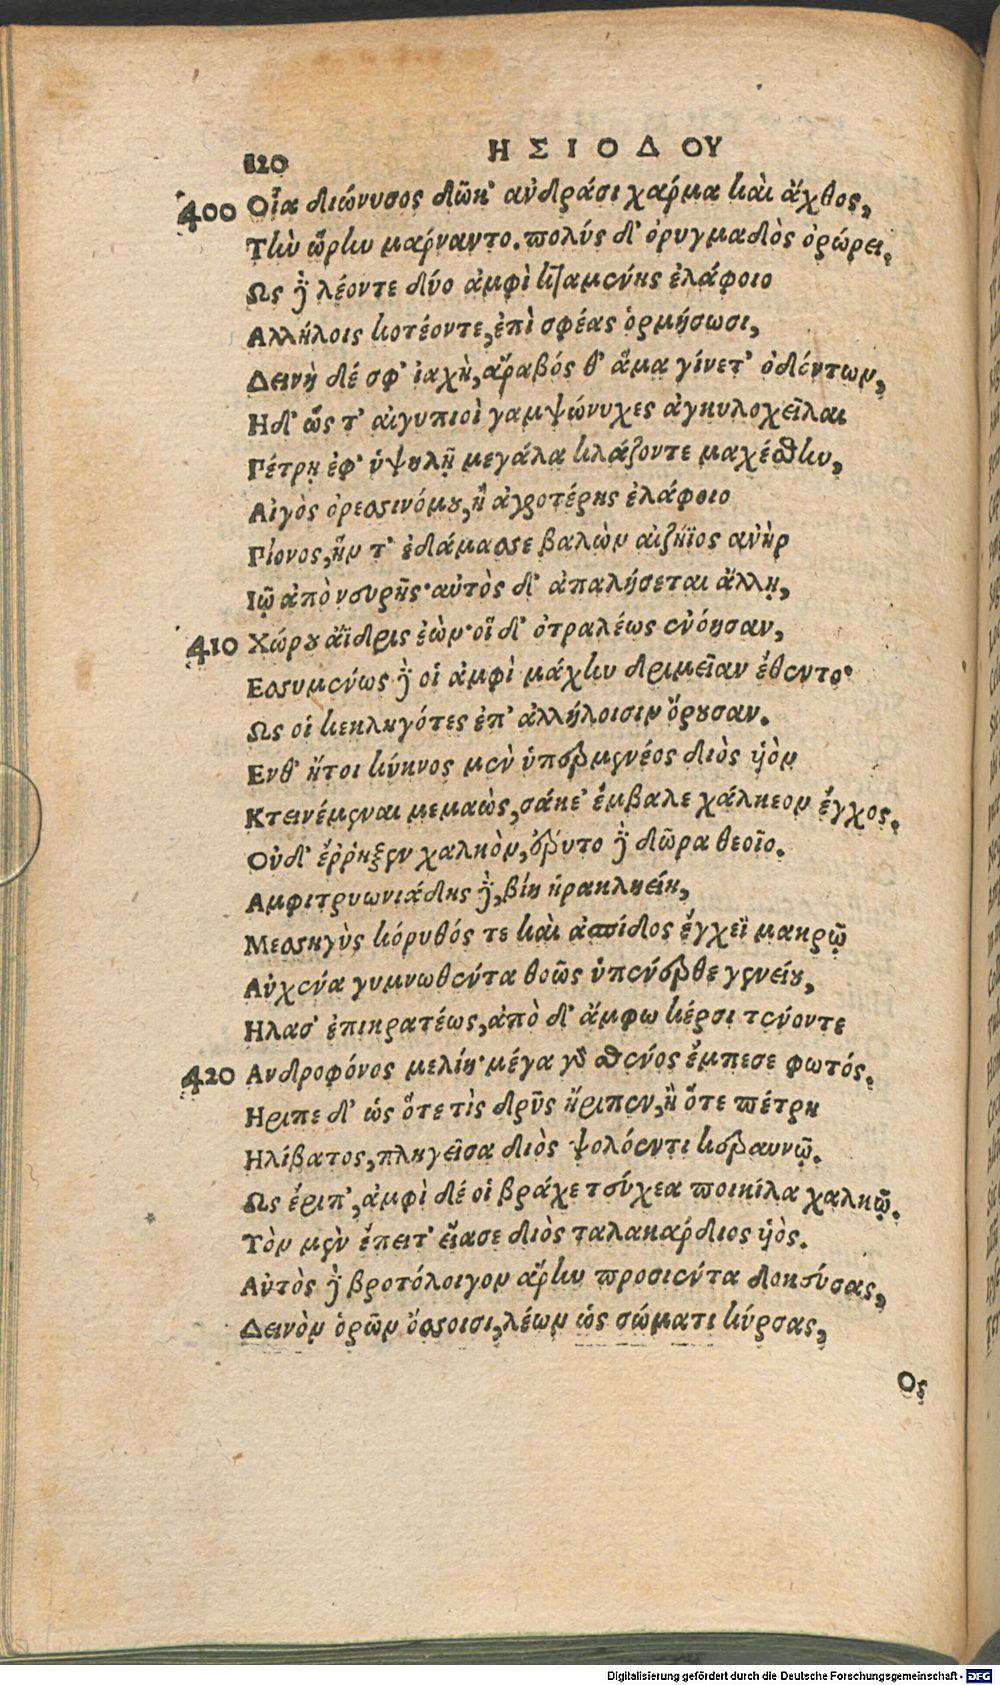 120
ΗΣΙΟΔΟΥ
400 Οἷα διώνυσος δῶκ' ἀνδράσι χάρμα καὶ ἄχθος,
Τὴν ὥρην μάρναντο. πολὺς δ' ὀρυγμαδὸς ὀρώρει.
Ως ἢ λέοντε δύο ἀμφὶ κταμένης ἐλάφοιο
Αλλήλοις κοτέοντε, ἐπὶ σφέας ὁρμήσωσι,
Δεινὴ δέ σφ' ἰαχὴ, ἄραβός θ' ἅμα γίνετ' ὀδόντων,
Ηδ' ὥς τ' αἰγυπιοὶ γαμψώνυχες ἀγκυλοχεῖλαι
Πέτρῃ ἐφ' ὑψηλῇ μεγάλα κλάζοντε μαχέσθην,
Αἰγὸς ὀρεσσινόμου, ἢ ἀγροτέρης ἐλάφοιο
Πίονος, ἥν τ' ἐδάμασσε βαλὼν αἰζήϊος ἀνὴρ
Ιῷ ἀπὸ νευρῆς· αὐτὸς δ' ἀπαλήσεται ἄλλῃ,
410 Χώρου ἄϊδρις ἐὼν· οἳ δ' ὀτραλέως ἐνόησαν,
Εσσυμένως δὲ οἱ ἀμφὶ μάχην δριμεῖαν ἔθεντο·
Ως οἱ κεκληγότες ἐπ' ἀλλήλοισιν ὄρουσαν.
Ενθ' ἤτοι κύκνος μὲν ὑπερμενέος διὸς ὑὸν
Κτεινέμεναι μεμαὼς, σάκε' ἔμβαλε χάλκεον ἔγχος.
Οὐδ' ἔῤῥηξεν χαλκὸν, ἔρυτο δὲ δῶρα θεοῖο.
Αμφιτρυωνιάδης δὲ, βίη ἡρακληείη,
Μεσσηγὺς κόρυθός τε καὶ ἀσπίδος ἔγχεϊ μακρῷ
Αὐχένα γυμνωθέντα θοῶς ὑπένερθε γενείου,
Ηλασ' ἐπικρατέως, ἀπὸ δ' ἄμφω κέρσε τένοντε
420 Ανδροφόνος μελίη· μέγα γὰρ σθένος ἔμπεσε φωτός.
Ηριπε δ' ὡς ὅτε τὶς δρῦς ἤριπεν, ἢ ὅτε πέτρη
Ηλίβατος, πληγεῖσα διὸς ψολόεντι κεραυνῷ.
Ως ἔριπ', ἀμφὶ δέ οἱ βράχε τεύχεα ποικίλα χαλκῷ.
Τὸν μὲν ἔπειτ' εἴασε διὸς ταλακάρδιος ὑὸς.
Αὐτὸς δὲ βροτόλοιγον ἄρην προσιόντα δοκεύσας,
Δεινὸν ὁρῶν ὄσσοισι, λέων ὡς σώματι κύρσας,
Ος
Digitalisierung gefördert durch die Deutsche Forschungsgemeinschaft - DFG